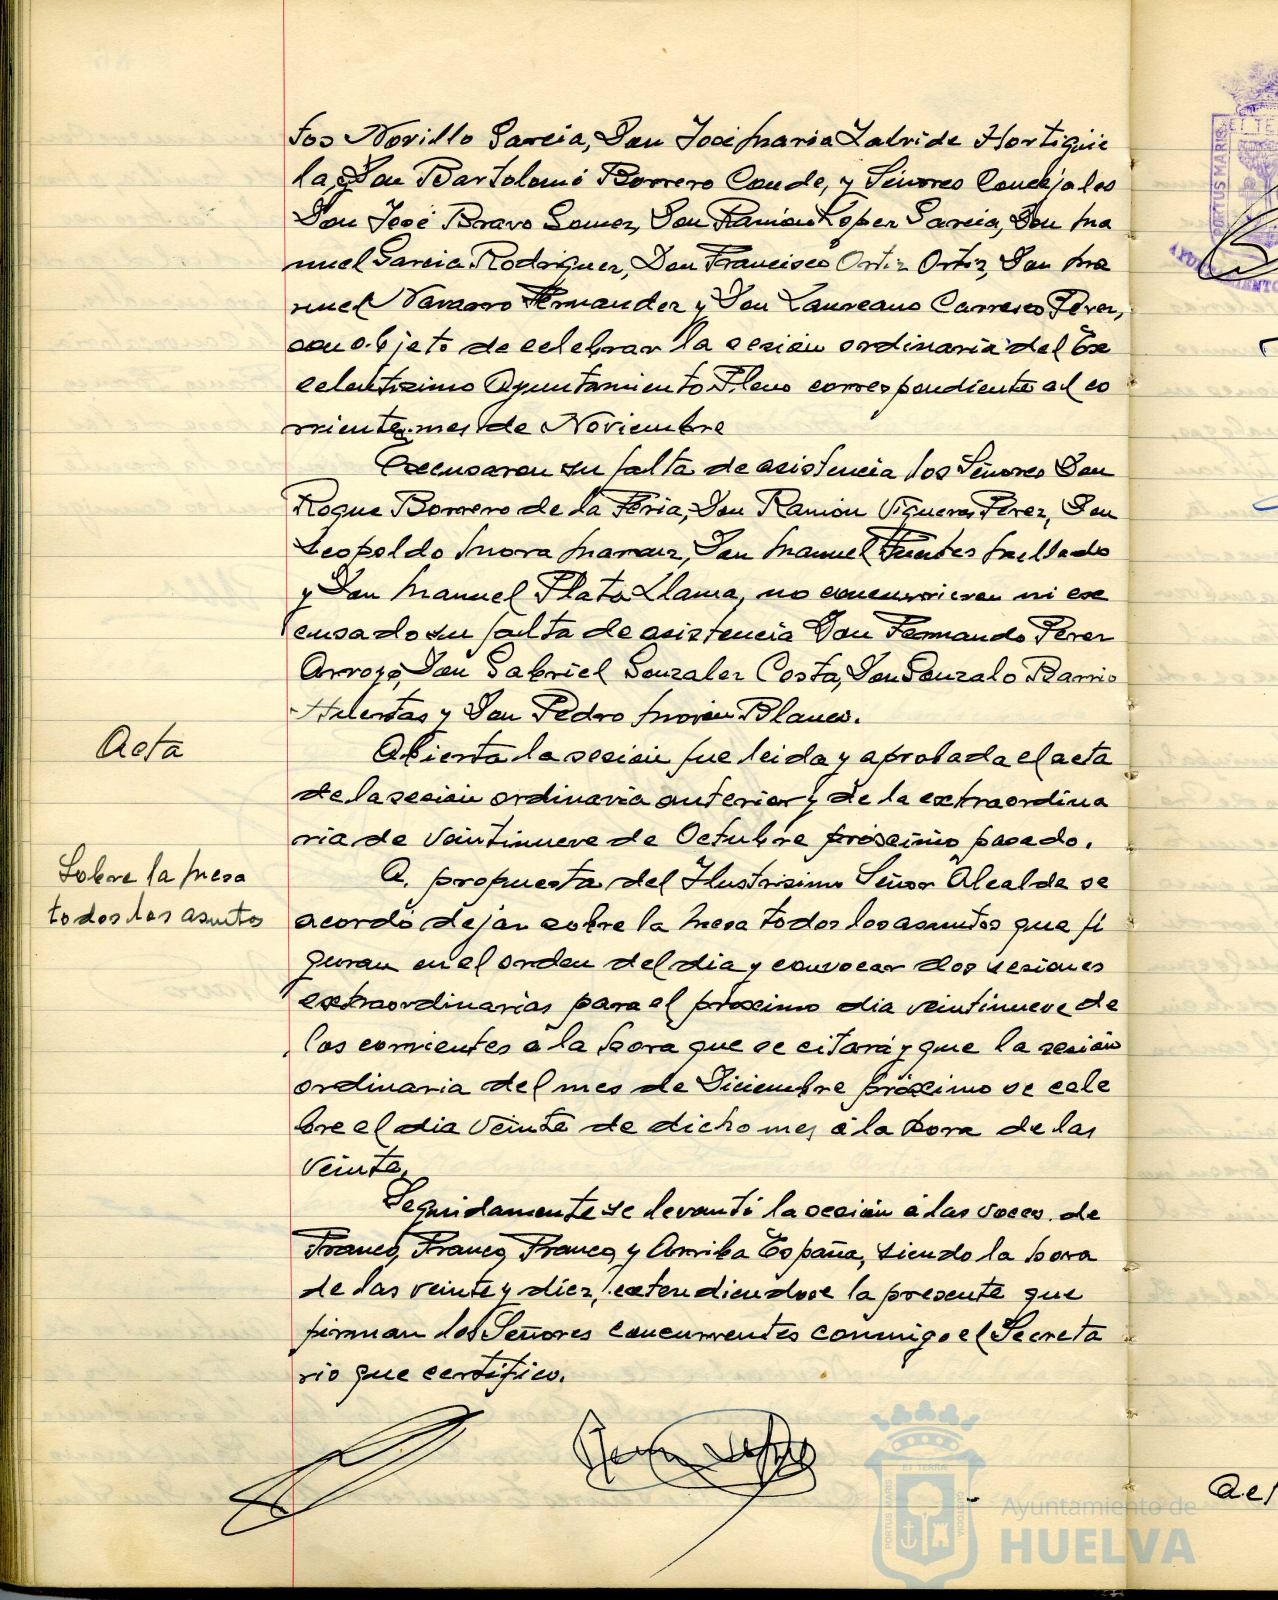 tos Novillo Garcia, Don José Maria Zalvide Hortigüe
la, y Don Bartolomé Borrero Conde, y Señores Concejales
Don José Bravo Gomez, Don Ramón Lopez Garcia, Don Ma
nuel Garcia Rodriguez, Don Francisco Ortiz Ortiz, Don Ma
nuel Navarro Fernandez y Don Laureano Carrasco Perez,
con objeto de celebrar la sesión ordinaria del Ex
celentisimo Ayuntamiento Pleno correspondiente al co
rriente mes de Noviembre
Excusaron su falta de asistencia los Señores Don
Roque Borrero de la Feria, Don Ramon Vigueras Perez, Don
Leopoldo Mora Don Manuel Fuentes
y Don Manuel Plata Llama, no concurrieron ni ex
cusado su falta de asistencia Don Fernando Perez
Arroyo, Don Gabriel Gonzalez Costa, Don Gonzalo Barrio
Huertas y Don Pedro Morón Blanco.
Acta
Abierta la sesión fue leida y aprobada el acta
de la sesión ordinaria anterior y de la extraordina
ria de veintinueve de Octubre próximo pasado.
Sobre la mesa
todos los asuntos
A propuesta del Ilustrisimo Señor Alcalde se
acordó dejar sobre la mesa todos los asuntos que fi
guran en el orden del dia y convocar dos sesiones
extraordinarias para el próximo dia veintinueve de
los corrientes a la hora que se citará y que la sesión
ordinaria del mes de Diciembre próximo se cele
bre el dia veinte de dicho mes a la hora de las
veinte.
Seguidamente se levantó la sesión a las voces de
Franco, Franco, Franco, y Arriba España, siendo la hora
de las veinte y diez, extendiendose la presente que
firman los Señores concurrentes conmigo el Secreta
rio que certifico.
PORTUS MARIS
ET TERRA
CUSTODIA
Ayuntamiento de
HUELVA